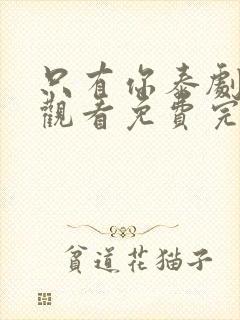 只有你泰劇
觀看免費完
貧道花猫子